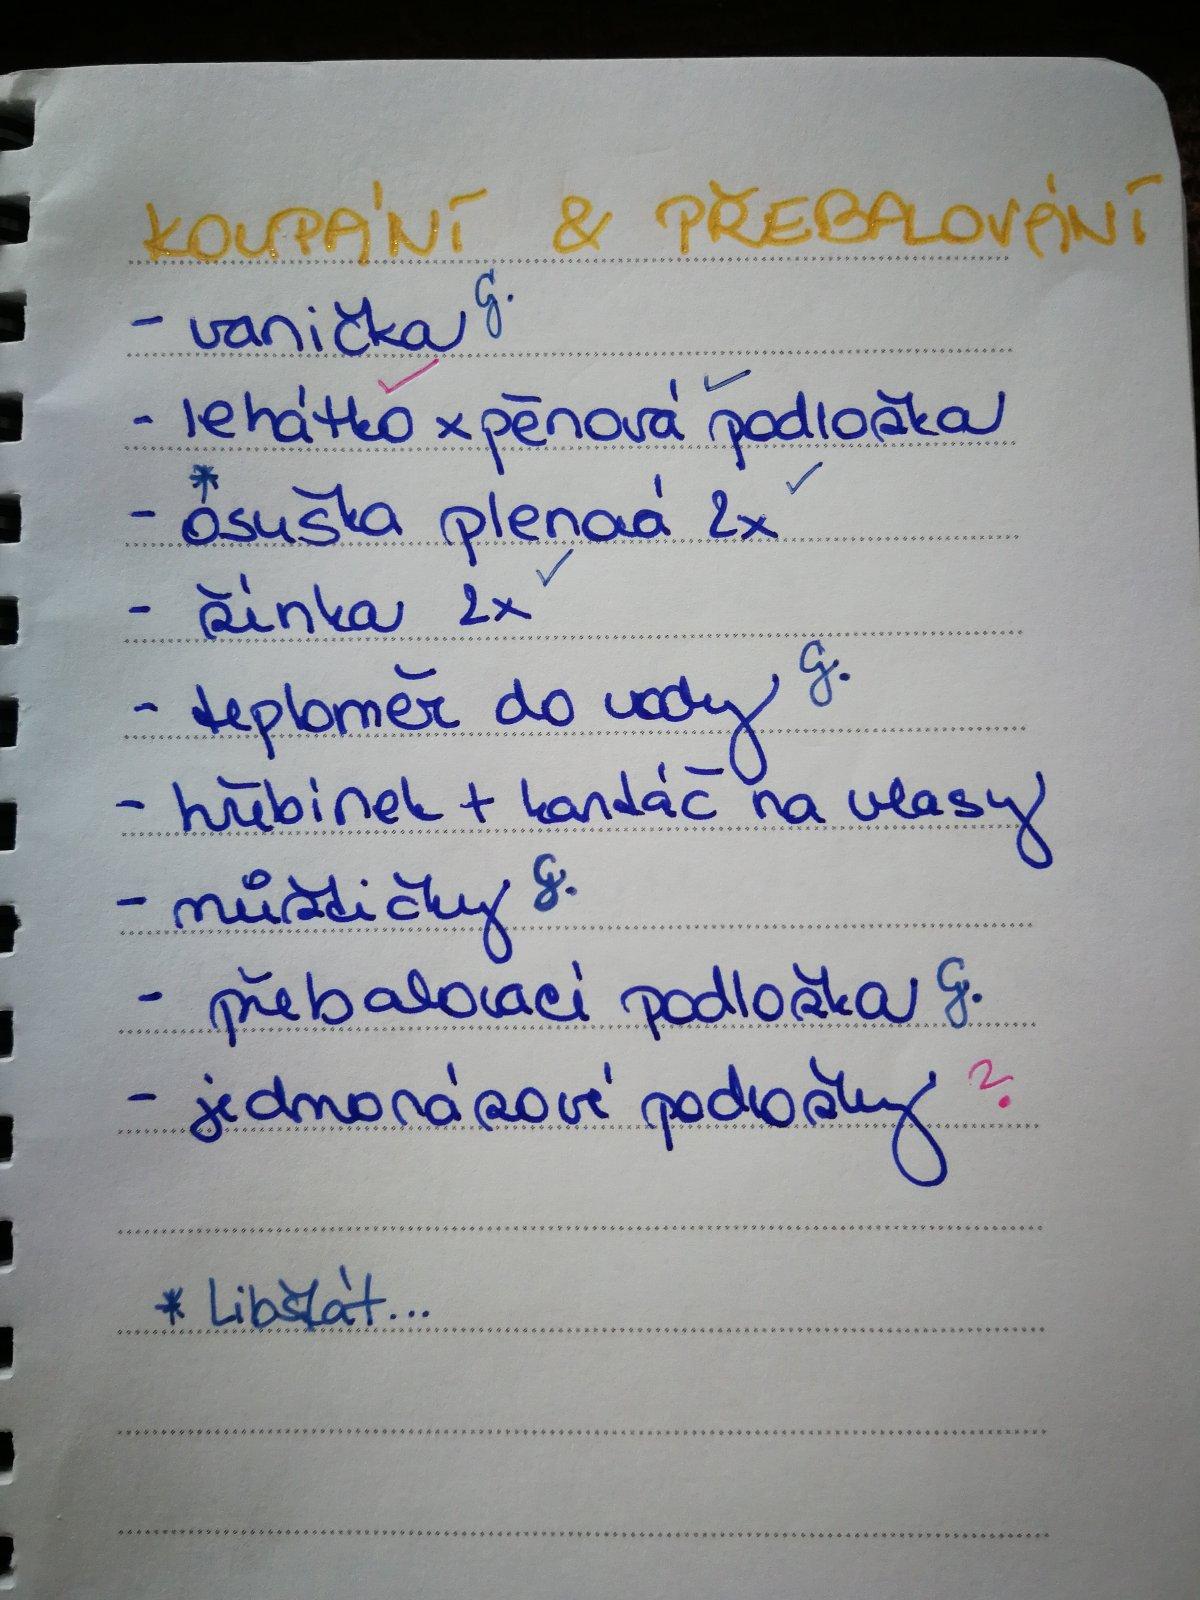 KOUPÁNÍ & PŘEBALOVÁNÍ
- vanička G.
- lehátko ✓ x pěnová podložka ✓
- *osuška plenová 2x ✓
- žínka 2x ✓
- teploměr do vody G.
- hřebínek + kartáč na vlasy
- nůžtičky G.
- přebalovací podložka G.
- jednorázové podložky ?
* Libštát...